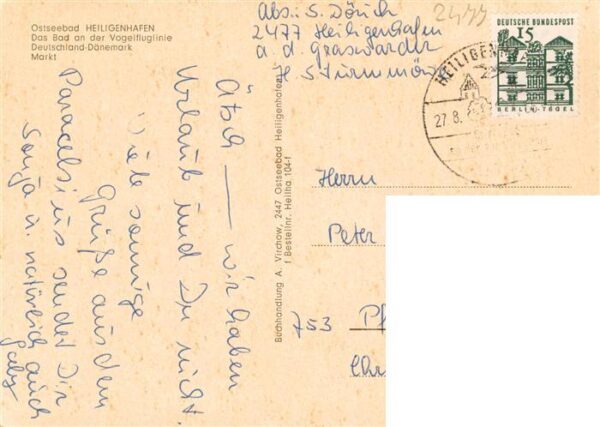 Ostseebad HEILIGENHAFEN
Das Bad an der Vogelfluglinie
Deutschland-Dänemark
Markt
Abs.: S. Dörich
2477 Heiligenhafen
a. d. Graswarder
H Sturmmöwe
2477
DEUTSCHE BUNDESPOST
15
BERLIN-TEGEL
HEILIGENH
27.8.
Ätsch — wir haben
Urlaub und Du nicht
Viele sonnige
Grüße aus dem
Paracelsius sendet Dir
Sonja u. natürlich auch
Gaby
Buchhandlung A. Virchow, 2447 Ostseebad Heiligenhafen
f Bestellnr. Heilha 104-f
Herrn
Peter
753 Pf
Chr